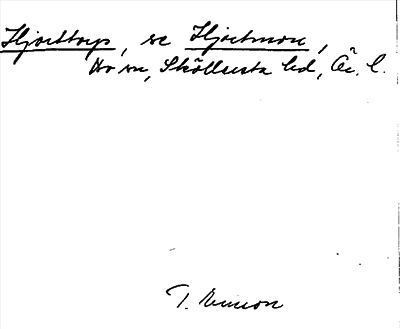 Hjorttorp, se Hjortmon,
Ho sn, Sköllersta hd, Ör. l.
T. Ericsson